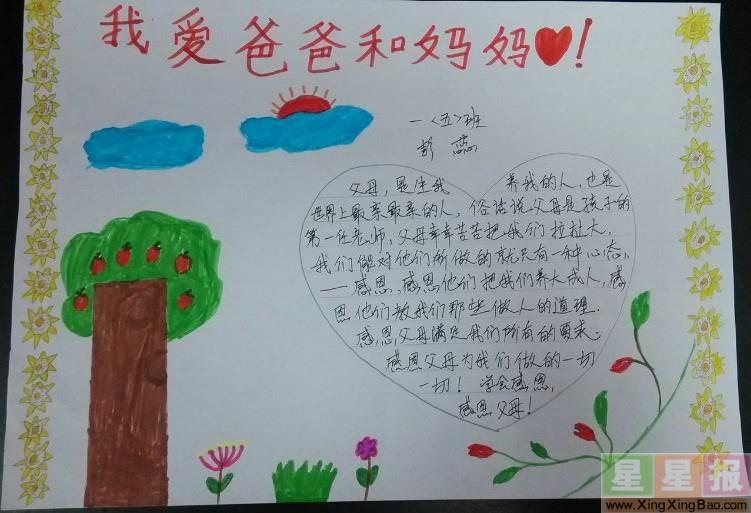 我爱爸爸和妈妈❤!
一<五>班
彭蕊
父母,是生我 养我的人,也是
世界上最亲最亲的人,俗话说父母是孩子的
第一任老师,父母辛辛苦苦把我们拉扯大,
我们能对他们所做的就只有一种心态,
——感恩、感恩他们把我们养大成人,感
恩他们教我们那些做人的道理.
感恩父母满足我们所有的要求.
感恩父母为我们做的一切
一切!学会感恩,
感恩父母!
星星报
www.XingXingBao.com